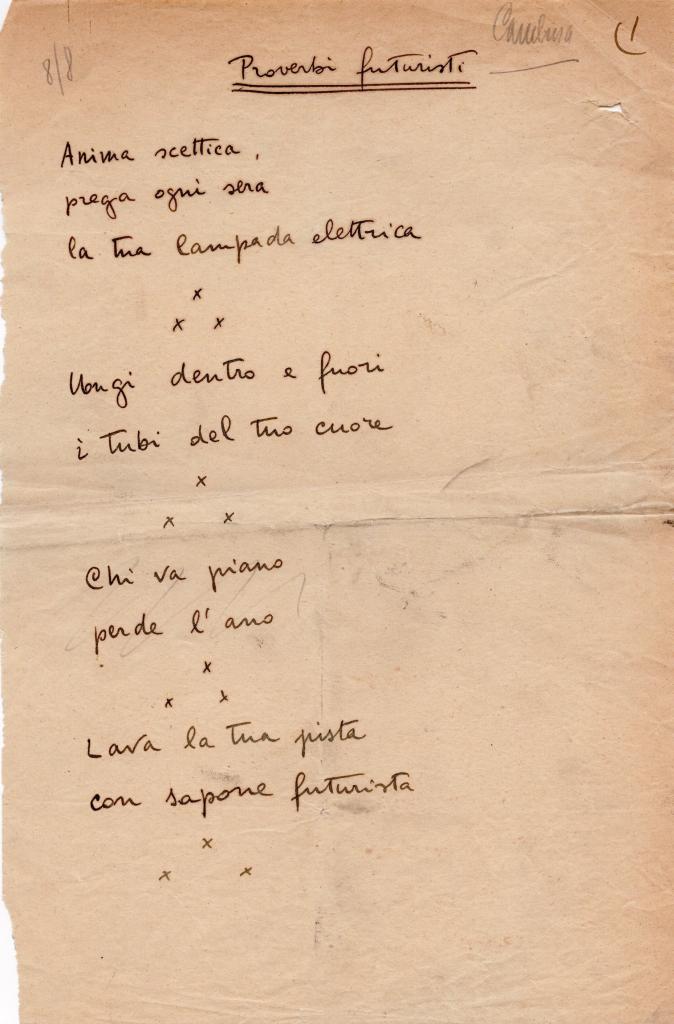 8/8
1
Proverbi futuristi
Anima scettica,
prega ogni sera
la tua lampada elettrica
x
x x
Ungi dentro e fuori
i tubi del tuo cuore
x
x x
Chi va piano
perde l'ano
x
x x
Lava la tua pista
con sapone futurista
x
x x